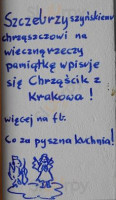 Szczebrzyszyńskiemu
chrząszczowi na
wieczną rzeczy
pamiątkę wpisuje
się Chrząścik z
Krakowa!
więcej na fb.
Co za pyszna kuchnia!